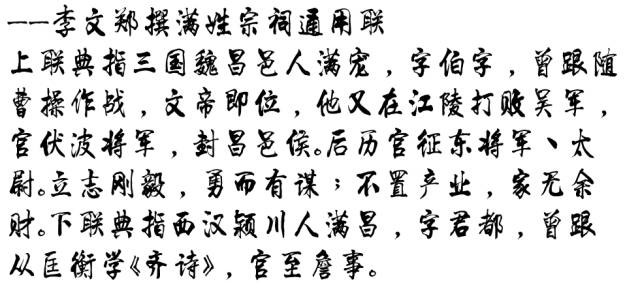 ——李文郑撰满姓宗祠通用联
上联典指三国魏昌邑人满宠，字伯宁，曾跟随
曹操作战，文帝即位，他又在江陵打败吴军，
官伏波将军，封昌邑侯。后历官征东将军、太
尉。立志刚毅，勇而有谋；不置产业，家无余
财。下联典指西汉颍川人满昌，字君都，曾跟
从匡衡学《齐诗》，官至詹事。